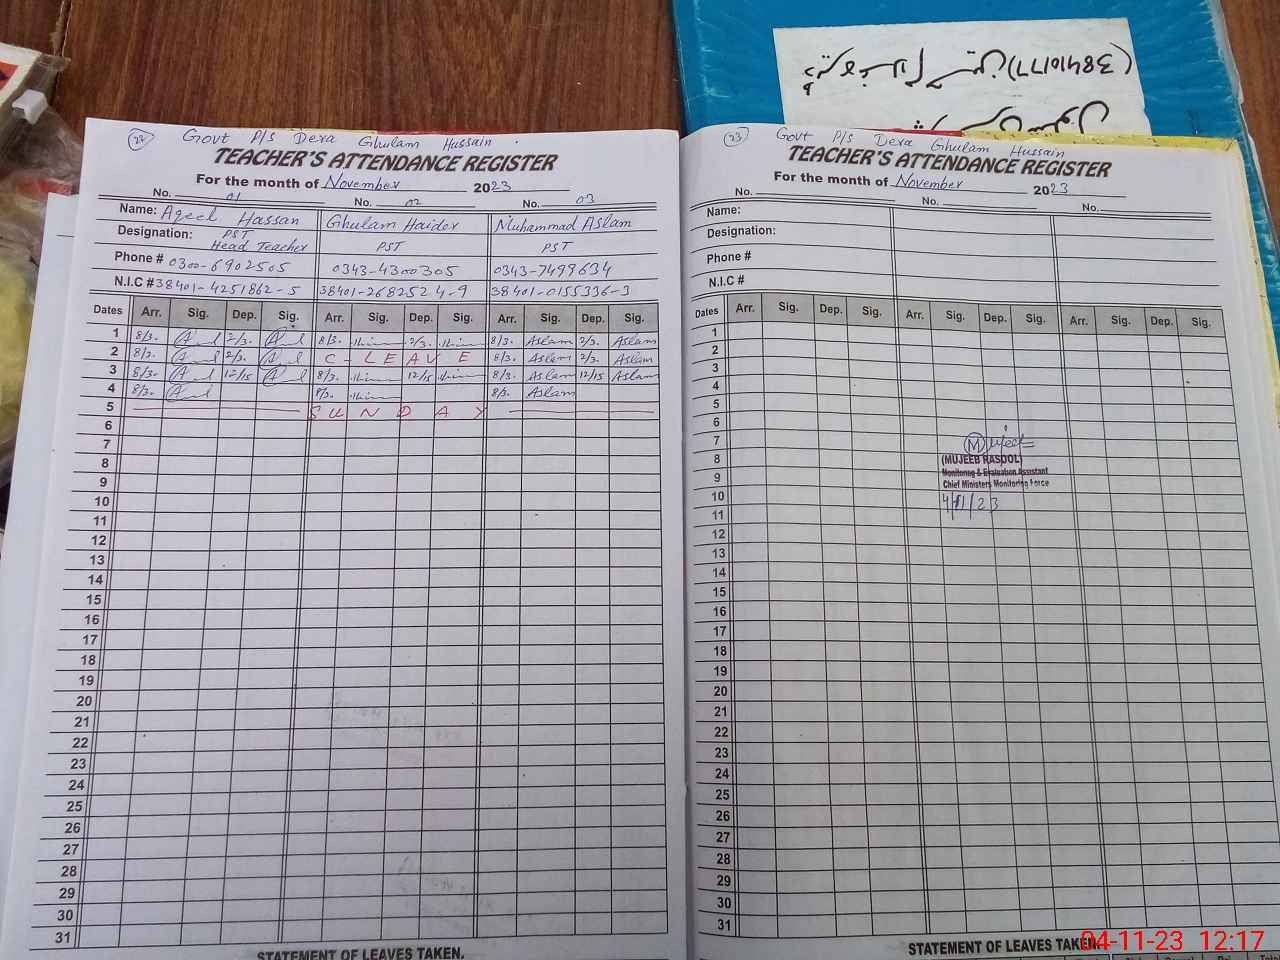 (38410177)
22 Govt P/S Dera Ghulam Hussain
TEACHER'S ATTENDANCE REGISTER
For the month of November 2023
No. 01 No. 02 No. 03
Name: Aqeel Hassan Ghulam Haider Muhammad Aslam
Designation: PST Head Teacher PST PST
Phone # 0300-6902505 0343-4300305 0343-7499634
N.I.C # 38401-4251862-5 38401-2682524-9 38401-0155336-3
Dates Arr. Sig. Dep. Sig. Arr. Sig. Dep. Sig. Arr. Sig. Dep. Sig.
1 8/3. 2/3. 8/3. 2/3. 8/3. Aslam 2/3. Aslam
2 8/3. 2/3. C-LEAVE 8/3. Aslam 2/3. Aslam
3 8/3. 12/15 8/3. 12/15 8/3. Aslam 12/15 Aslam
4 8/3. 8/3. 8/3. Aslam
5 SUNDAY
6
7
8
9
10
11
12
13
14
15
16
17
18
19
20
21
22
23
24
25
26
27
28
29
30
31
STATEMENT OF LEAVES TAKEN.
23 Govt P/S Dera Ghulam Hussain
TEACHER'S ATTENDANCE REGISTER
For the month of November 2023
No. No. No.
Name:
Designation:
Phone #
N.I.C #
Dates Arr. Sig. Dep. Sig. Arr. Sig. Dep. Sig. Arr. Sig. Dep. Sig.
1
2
3
4
5
6
7
8
9
10
11
12
13
14
15
16
17
18
19
20
21
22
23
24
25
26
27
28
29
30
31
Mujeeb
(MUJEEB RASOOL)
Monitoring & Evaluation Assistant
Chief Ministers Monitoring Force
4/11/23
STATEMENT OF LEAVES TAKEN.
04-11-23 12:17